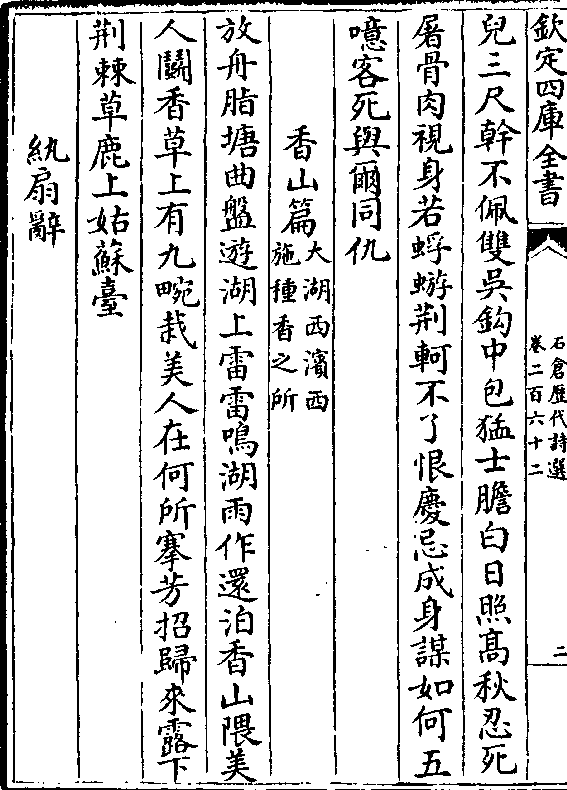 欽定四庫全書
石倉歷代詩選
卷二百六十二
二
兒三尺幹不佩雙吳鈎中包猛士膽白日照髙秋忍死
屠骨肉視身若蜉蝣荆軻不了恨慶忌成身謀如何五
噫客死與爾同仇
香山篇
大湖西濱西
施種香之所
放舟脂塘曲盤遊湖上雷雷鳴湖雨作還泊香山隈美
人鬭香草上有九畹栽美人在何所搴芳招歸來露下
荆棘草鹿上姑蘇臺
紈扇辭